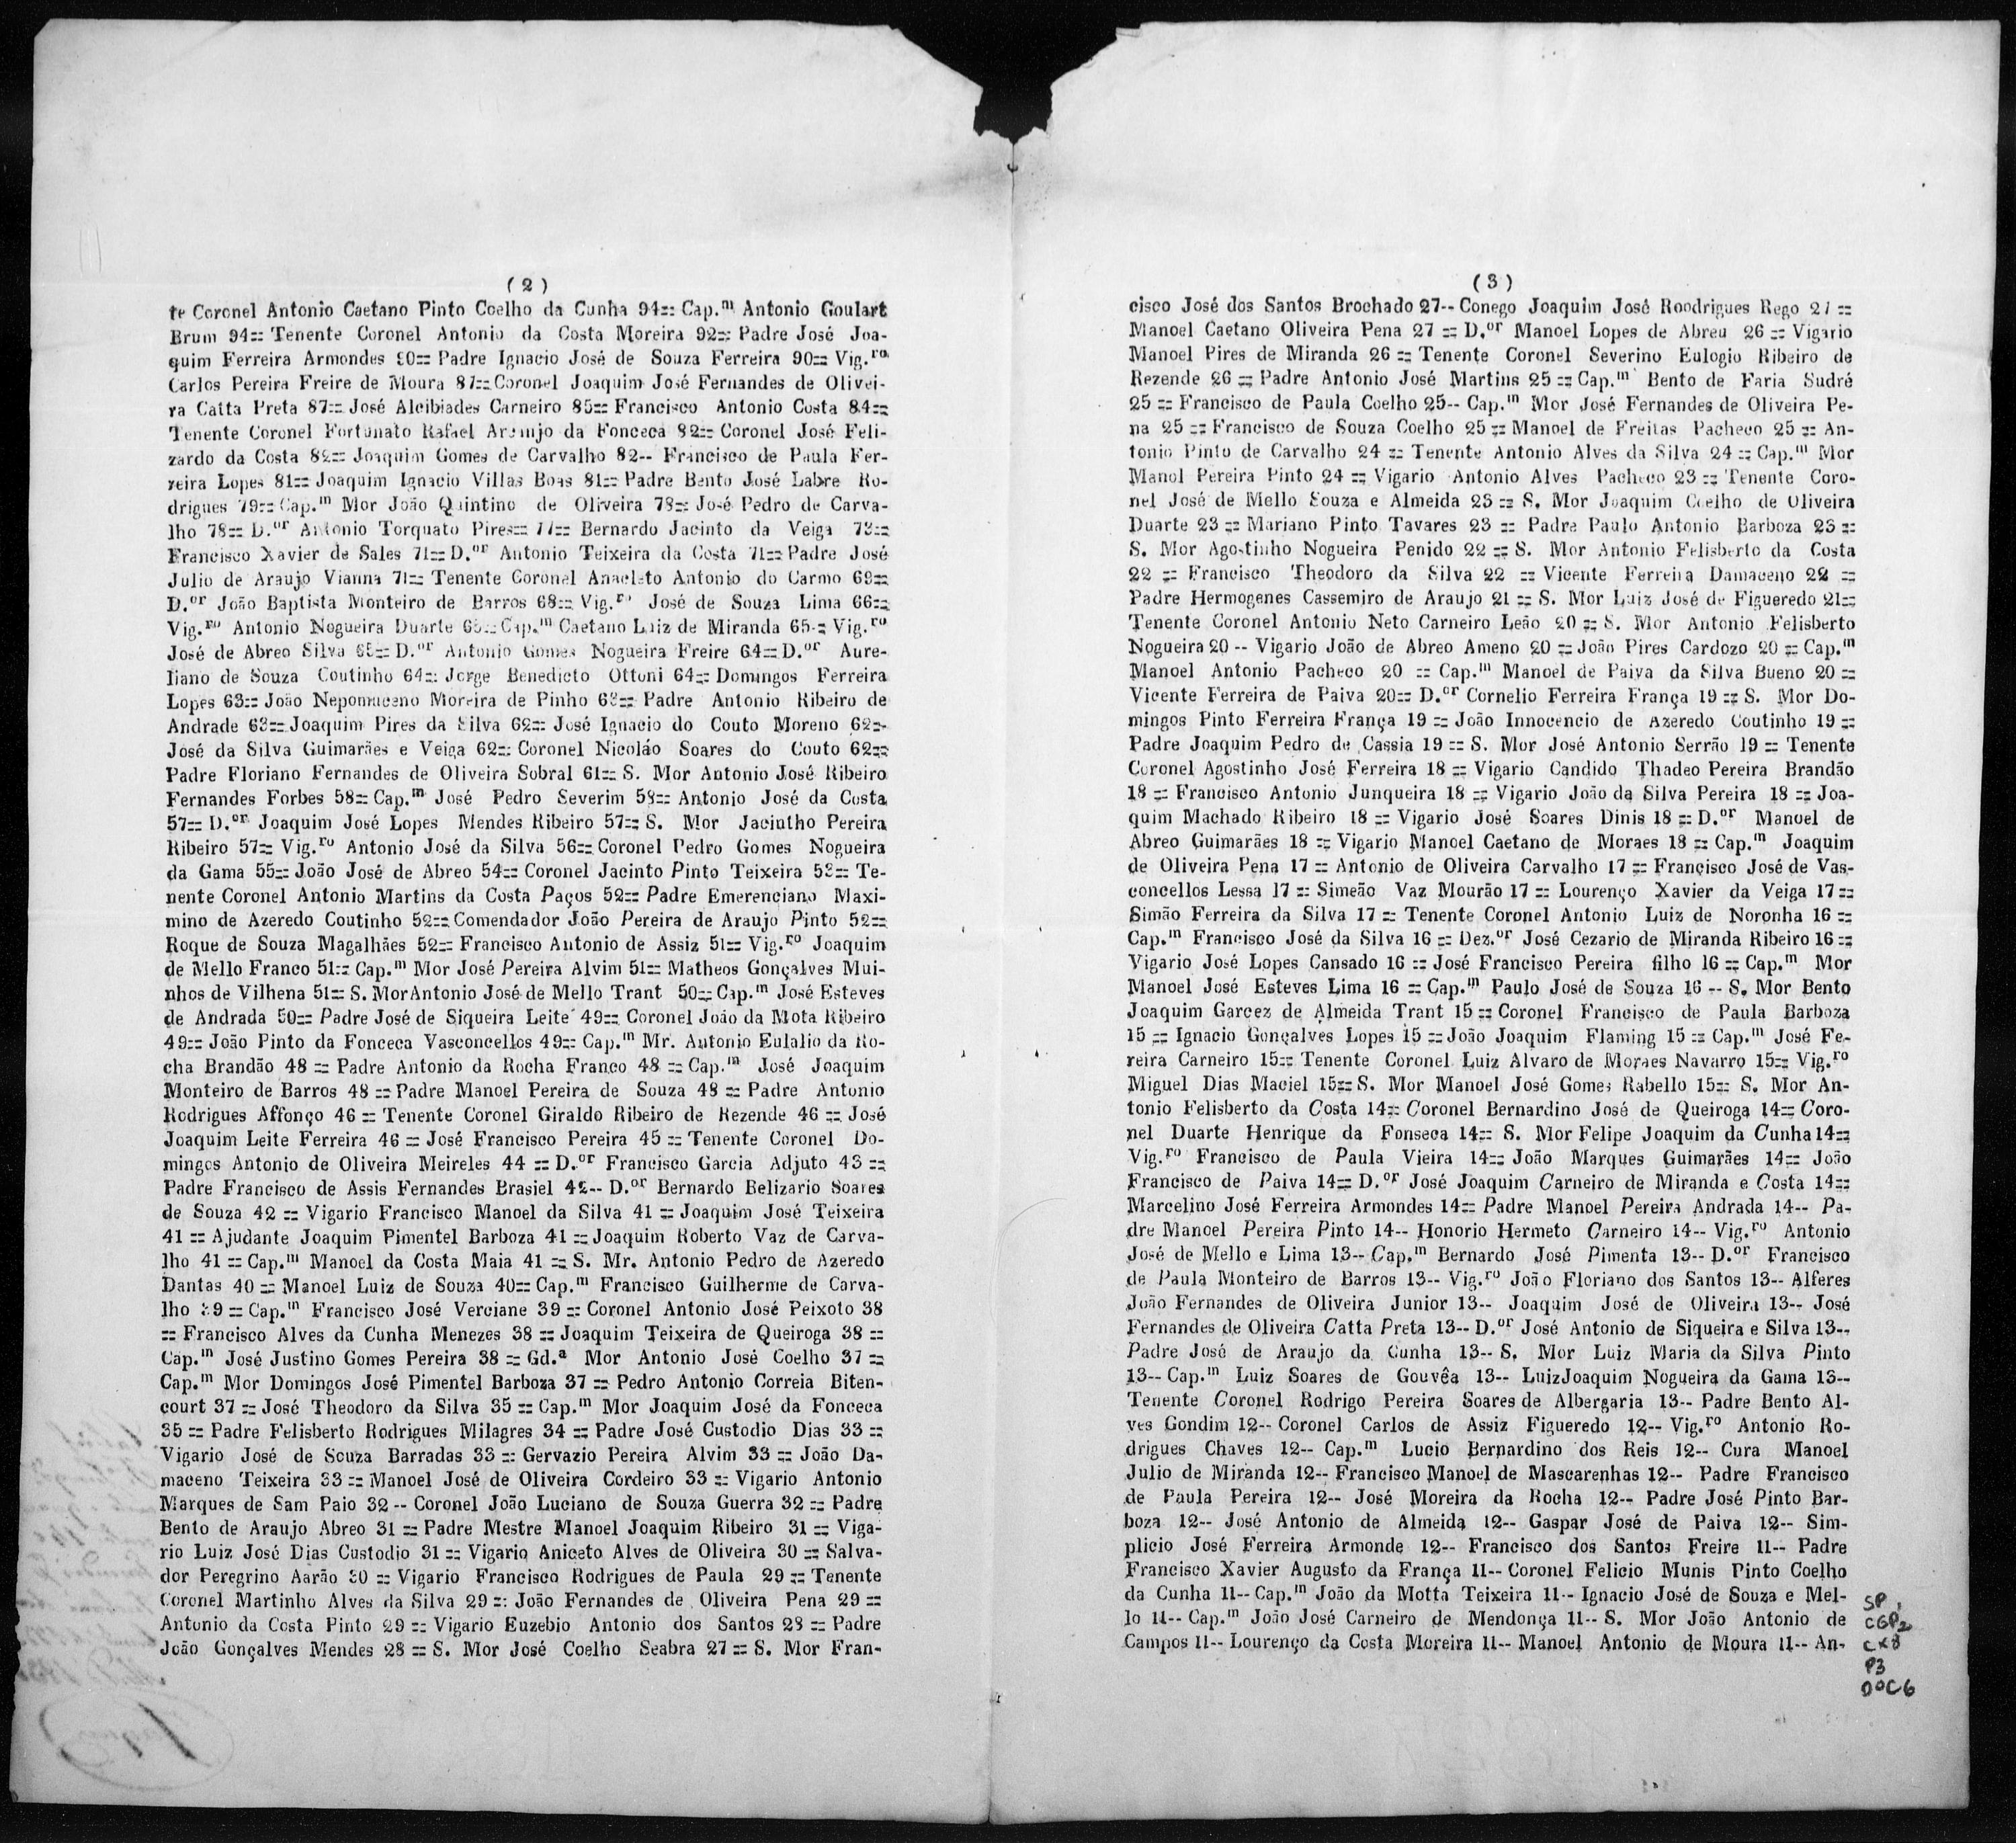 (2)
te Coronel Antonio Caetano Pinto Coelho da Cunha 94== Cap.m Antonio Goulart
Brum 94== Tenente Coronel Antonio da Costa Moreira 92== Padre José Joa-
quim Ferreira Armondes 90== Padre Ignacio José de Souza Ferreira 90== Vig.ro
Carlos Pereira Freire de Moura 87== Coronel Joaquim José Fernandes de Olivei-
ra Catta Preta 87== José Alcibiades Carneiro 85== Francisco Antonio Costa 84==
Tenente Coronel Fortunato Rafael Araujo da Fonceca 82== Coronel José Feli-
zardo da Costa 82== Joaquim Gomes de Carvalho 82-- Francisco de Paula Fer-
reira Lopes 81== Joaquim Ignacio Villas Boas 81== Padre Bento José Labre Ro-
drigues 79== Cap.m Mor João Quintino de Oliveira 78== José Pedro de Carva-
lho 78== D.or Antonio Torquato Pires== 77== Bernardo Jacinto da Veiga 73==
Francisco Xavier de Sales 71== D.or Antonio Teixeira da Costa 71== Padre José
Julio de Araujo Vianna 71== Tenente Coronel Anacleto Antonio do Carmo 69==
D.or João Baptista Monteiro de Barros 68== Vig.ro José de Souza Lima 66==
Vig.ro Antonio Nogueira Duarte 65== Cap.m Caetano Luiz de Miranda 65== Vig.ro
José de Abreo Silva 65== D.or Antonio Gomes Nogueira Freire 64== D.or Aure-
liano de Souza Coutinho 64== Jorge Benedicto Ottoni 64== Domingos Ferreira
Lopes 63== João Nepomuceno Moreira de Pinho 63== Padre Antonio Ribeiro de
Andrade 63== Joaquim Pires da Silva 62== José Ignacio do Couto Moreno 62==
José da Silva Guimarães e Veiga 62== Coronel Nicoláo Soares do Couto 62==
Padre Floriano Fernandes de Oliveira Sobral 61== S. Mor Antonio José Ribeiro
Fernandes Forbes 58== Cap.m José Pedro Severim 58== Antonio José da Costa
57== D.or Joaquim José Lopes Mendes Ribeiro 57== S. Mor Jacintho Pereira
Ribeiro 57== Vig.ro Antonio José da Silva 56== Coronel Pedro Gomes Nogueira
da Gama 55== João José de Abreo 54== Coronel Jacinto Pinto Teixeira 53== Te-
nente Coronel Antonio Martins da Costa Paços 52== Padre Emerenciano Maxi-
mino de Azeredo Coutinho 52== Comendador João Pereira de Araujo Pinto 52==
Roque de Souza Magalhães 52== Francisco Antonio de Assiz 51== Vig.ro Joaquim
de Mello Franco 51== Cap.m Mor José Pereira Alvim 51== Matheos Gonçalves Mui-
nhos de Vilhena 51== S. MorAntonio José de Mello Trant 50== Cap.m José Esteves
de Andrada 50== Padre José de Siqueira Leite 49== Coronel João da Mota Ribeiro
49== João Pinto da Fonceca Vasconcellos 49== Cap.m Mr. Antonio Eulalio da Ro-
cha Brandão 48 == Padre Antonio da Rocha Franco 48 == Cap.m José Joaquim
Monteiro de Barros 48 == Padre Manoel Pereira de Souza 48 == Padre Antonio
Rodrigues Affonço 46 == Tenente Coronel Giraldo Ribeiro de Rezende 46 == José
Joaquim Leite Ferreira 46 == José Francisco Pereira 45 == Tenente Coronel Do-
mingos Antonio de Oliveira Meireles 44 == D.or Francisco Garcia Adjuto 43 ==
Padre Francisco de Assis Fernandes Brasiel 42-- D.or Bernardo Belizario Soares
de Souza 42 == Vigario Francisco Manoel da Silva 41 == Joaquim José Teixeira
41 == Ajudante Joaquim Pimentel Barboza 41 == Joaquim Roberto Vaz de Carva-
lho 41 == Cap.m Manoel da Costa Maia 41 == S. Mr. Antonio Pedro de Azeredo
Dantas 40 == Manoel Luiz de Souza 40== Cap.m Francisco Guilherme de Carva-
lho 39 == Cap.m Francisco José Verciane 39 == Coronel Antonio José Peixoto 38
== Francisco Alves da Cunha Menezes 38 == Joaquim Teixeira de Queiroga 38 ==
Cap.m José Justino Gomes Pereira 38 == Gd.a Mor Antonio José Coelho 37 ==
Cap.m Mor Domingos José Pimentel Barboza 37 == Pedro Antonio Correia Biten-
court 37 == José Theodoro da Silva 35 == Cap.m Mor Joaquim José da Fonceca
35 == Padre Felisberto Rodrigues Milagres 34 == Padre José Custodio Dias 33 ==
Vigario José de Souza Barradas 33 == Gervazio Pereira Alvim 33 == João Da-
maceno Teixeira 33 == Manoel José de Oliveira Cordeiro 33 == Vigario Antonio
Marques de Sam Paio 32 -- Coronel João Luciano de Souza Guerra 32 == Padre
Bento de Araujo Abreo 31 == Padre Mestre Manoel Joaquim Ribeiro 31 == Viga-
rio Luiz José Dias Custodio 31 == Vigario Aniceto Alves de Oliveira 30 == Salva-
dor Peregrino Aarão 30 == Vigario Francisco Rodrigues de Paula 29 == Tenente
Coronel Martinho Alves da Silva 29 == João Fernandes de Oliveira Pena 29 ==
Antonio da Costa Pinto 29 == Vigario Euzebio Antonio dos Santos 28 == Padre
João Gonçalves Mendes 28 == S. Mor José Coelho Seabra 27 == S. Mor Fran-
(3)
cisco José dos Santos Brochado 27-- Conego Joaquim José Roodrigues Rego 27 ==
Manoel Caetano Oliveira Pena 27 == D.or Manoel Lopes de Abreu 26 == Vigario
Manoel Pires de Miranda 26 == Tenente Coronel Severino Eulogio Ribeiro de
Rezende 26 == Padre Antonio José Martins 25 == Cap.m Bento de Faria Sudré
25 == Francisco de Paula Coelho 25-- Cap.m Mor José Fernandes de Oliveira Pe-
na 25 == Francisco de Souza Coelho 25 == Manoel de Freitas Pacheco 25 == An-
tonio Pinto de Carvalho 24 == Tenente Antonio Alves da Silva 24 == Cap.m Mor
Manol Pereira Pinto 24 == Vigario Antonio Alves Pacheco 23 == Tenente Coro-
nel José de Mello Souza e Almeida 23 == S. Mor Joaquim Coelho de Oliveira
Duarte 23 == Mariano Pinto Tavares 23 == Padre Paulo Antonio Barboza 23 ==
S. Mor Agostinho Nogueira Penido 22 == S. Mor Antonio Felisberto da Costa
22 == Francisco Theodoro da Silva 22 == Vicente Ferreira Damaceno 22 ==
Padre Hermogenes Cassemiro de Araujo 21 == S. Mor Luiz José de Figueredo 21==
Tenente Coronel Antonio Neto Carneiro Leão 20 == S. Mor Antonio Felisberto
Nogueira 20 -- Vigario João de Abreo Ameno 20 == João Pires Cardozo 20 == Cap.m
Manoel Antonio Pacheco 20 == Cap.m Manoel de Paiva da Silva Bueno 20 ==
Vicente Ferreira de Paiva 20== D.or Cornelio Ferreira França 19 == S. Mor Do-
mingos Pinto Ferreira França 19 == João Innocencio de Azeredo Coutinho 19 ==
Padre Joaquim Pedro de Cassia 19 == S. Mor José Antonio Serrão 19 == Tenente
Coronel Agostinho José Ferreira 18 == Vigario Candido Thadeo Pereira Brandão
18 == Francisco Antonio Junqueira 18 == Vigario João da Silva Pereira 18 == Joa-
quim Machado Ribeiro 18 == Vigario José Soares Dinis 18 == D.or Manoel de
Abreo Guimarães 18 == Vigario Manoel Caetano de Moraes 18 == Cap.m Joaquim
de Oliveira Pena 17 == Antonio de Oliveira Carvalho 17 == Francisco José de Vas-
concellos Lessa 17 == Simeão Vaz Mourão 17 == Lourenço Xavier da Veiga 17 ==
Simão Ferreira da Silva 17 == Tenente Coronel Antonio Luiz de Noronha 16 ==
Cap.m Francisco José da Silva 16 == Dez.or José Cezario de Miranda Ribeiro 16 ==
Vigario José Lopes Cansado 16 == José Francisco Pereira filho 16 == Cap.m Mor
Manoel José Esteves Lima 16 == Cap.m Paulo José de Souza 16 -- S. Mor Bento
Joaquim Garcez de Almeida Trant 15 == Coronel Francisco de Paula Barboza
15 == Ignacio Gonçalves Lopes 15 == João Joaquim Flaming 15 == Cap.m José Fe-
reira Carneiro 15== Tenente Coronel Luiz Alvaro de Moraes Navarro 15== Vig.ro
Miguel Dias Maciel 15== S. Mor Manoel José Gomes Rabello 15== S. Mor An-
tonio Felisberto da Costa 14== Coronel Bernardino José de Queiroga 14== Coro-
nel Duarte Henrique da Fonseca 14== S. Mor Felipe Joaquim da Cunha 14==
Vig.ro Francisco de Paula Vieira 14== João Marques Guimarães 14== João
Francisco de Paiva 14== D.or José Joaquim Carneiro de Miranda e Costa 14==
Marcelino José Ferreira Armondes 14== Padre Manoel Pereira Andrada 14-- Pa-
dre Manoel Pereira Pinto 14-- Honorio Hermeto Carneiro 14-- Vig.ro Antonio
José de Mello e Lima 13-- Cap.m Bernardo José Pimenta 13-- D.or Francisco
de Paula Monteiro de Barros 13-- Vig.ro João Floriano dos Santos 13-- Alferes
João Fernandes de Oliveira Junior 13-- Joaquim José de Oliveira 13-- José
Fernandes de Oliveira Catta Preta 13-- D.or José Antonio de Siqueira e Silva 13--
Padre José de Araujo da Cunha 13-- S. Mor Luiz Maria da Silva Pinto
13-- Cap.m Luiz Soares de Gouvêa 13-- LuizJoaquim Nogueira da Gama 13--
Tenente Coronel Rodrigo Pereira Soares de Albergaria 13-- Padre Bento Al-
ves Gondim 12-- Coronel Carlos de Assiz Figueredo 12-- Vig.ro Antonio Ro-
drigues Chaves 12-- Cap.m Lucio Bernardino dos Reis 12-- Cura Manoel
Julio de Miranda 12-- Francisco Manoel de Mascarenhas 12-- Padre Francisco
de Paula Pereira 12-- José Moreira da Rocha 12-- Padre José Pinto Bar-
boza 12-- José Antonio de Almeida 12-- Gaspar José de Paiva 12-- Sim-
plicio José Ferreira Armonde 12-- Francisco dos Santos Freire 11-- Padre
Francisco Xavier Augusto da França 11-- Coronel Felicio Munis Pinto Coelho
da Cunha 11-- Cap.m João da Motta Teixeira 11-- Ignacio José de Souza e Mel-
lo 11-- Cap.m João José Carneiro de Mendonça 11-- S. Mor João Antonio de
Campos 11-- Lourenço da Costa Moreira 11-- Manoel Antonio de Moura 11-- An-
SP
CGP2
CX8
P3
DOC6